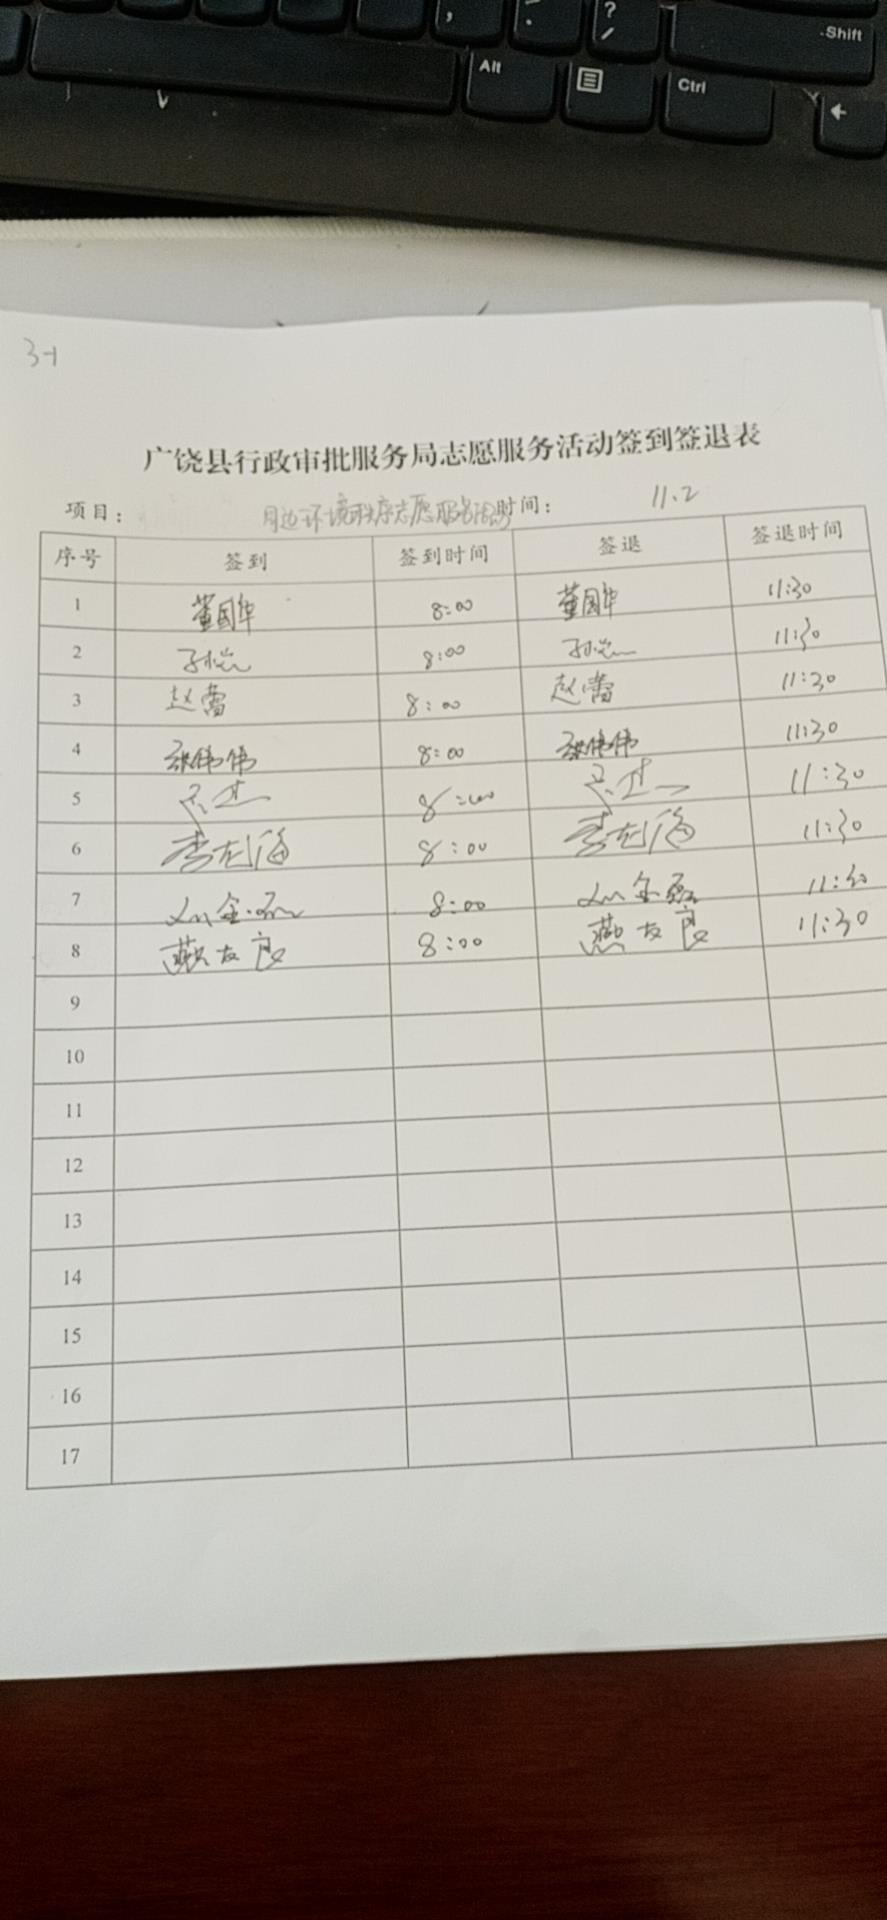 , . ? / Shift
Alt Ctrl
3-1
广饶县行政审批服务局志愿服务活动签到签退表
项目： 周边环境秩序志愿服务活动 时间： 11.2
序号 签到 签到时间 签退 签退时间
1 董国华 8:00 董国华 11:30
2 8:00 11:30
3 赵蕾 8:00 赵蕾 11:30
4 张伟伟 8:00 张伟伟 11:30
5 8:00 11:30
6 8:00 11:30
7 8:00 11:30
8 燕友良 8:00 燕友良 11:30
9
10
11
12
13
14
15
16
17